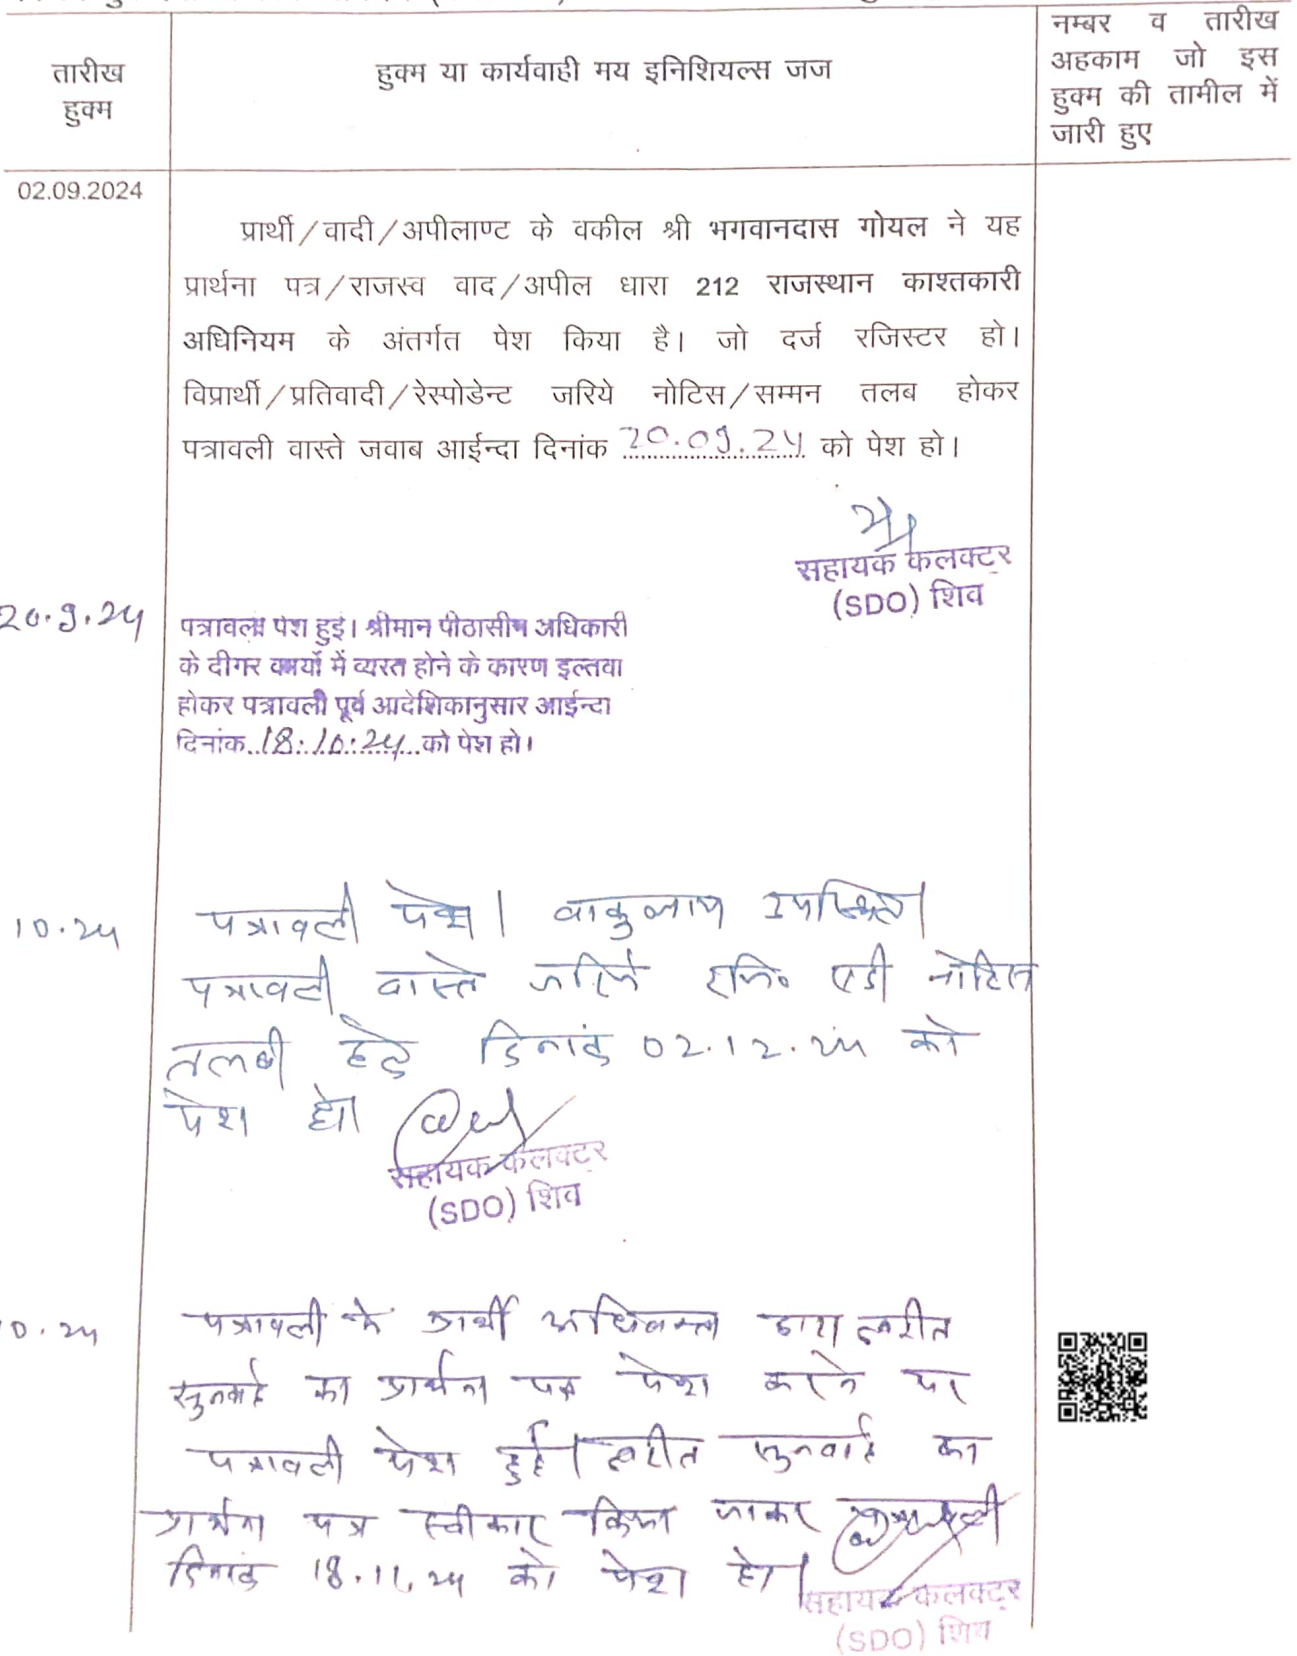 तारीख
हुक्म
हुक्म या कार्यवाही मय इनिशियल्स जज
नम्बर व तारीख
अहकाम जो इस
हुक्म की तामील में
जारी हुए
02.09.2024
प्रार्थी/वादी/अपीलाण्ट के वकील श्री भगवानदास गोयल ने यह
प्रार्थना पत्र/राजस्व वाद/अपील धारा 212 राजस्थान काश्तकारी
अधिनियम के अंतर्गत पेश किया है। जो दर्ज रजिस्टर हो।
विप्रार्थी/प्रतिवादी/रेस्पोडेन्ट जरिये नोटिस/सम्मन तलब होकर
पत्रावली वास्ते जवाब आईन्दा दिनांक 20.09.24 को पेश हो।
सहायक कलक्टर
(SDO) शिव
20.9.24
पत्रावली पेश हुई। श्रीमान पीठासीन अधिकारी
के दीगर कार्यो में व्यस्त होने के कारण इल्तवा
होकर पत्रावली पूर्व आदेशिकानुसार आईन्दा
दिनांक 18.10.24 को पेश हो।
10.24
पत्रावली पेश। वाकुलाय उपस्थित।
पत्रावली वास्ते जरिये रजि० एडी नोटिस
तलबी हेतु दिनांक 02.12.24 को
पेश हो।
सहायक कलक्टर
(SDO) शिव
0.24
पत्रावली के प्रार्थी अधिवक्ता द्वारा त्वरीत
सुनवाई का प्रार्थना पत्र पेश करने पर
पत्रावली पेश हुई। त्वरीत सुनवाई का
प्रार्थना पत्र स्वीकार किया जाकर पत्रावली
दिनांक 18.11.24 को पेश हो।
सहायक कलक्टर
(SDO) शिव